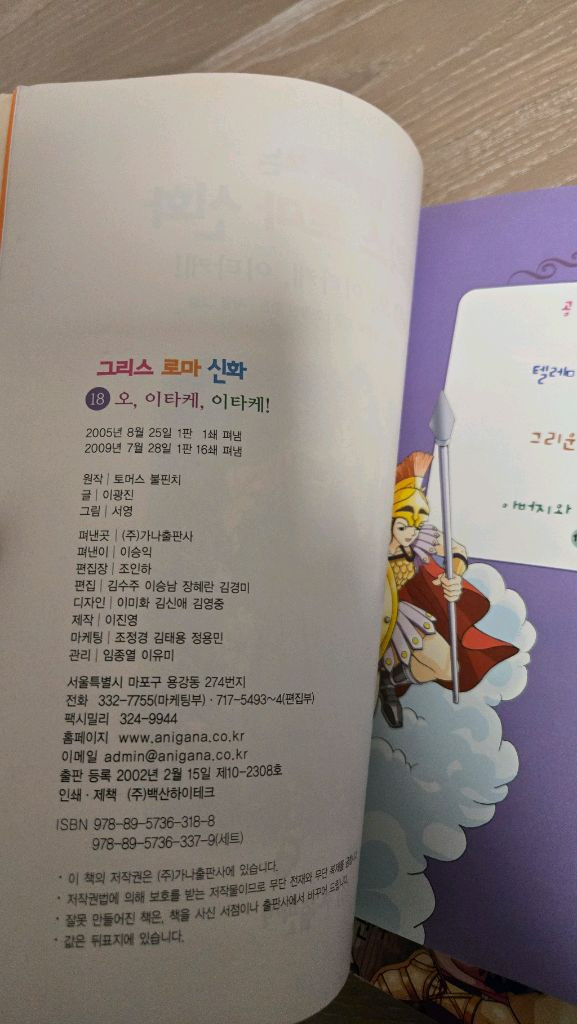 그리스 로마 신화
18 오, 이타케, 이타케!
2005년 8월 25일 1판 1쇄 펴냄
2009년 7월 28일 1판 16쇄 펴냄
원작 | 토머스 불핀치
글 | 이광진
그림 | 서영
펴낸곳 | (주)가나출판사
펴낸이 | 이승익
편집장 | 조인하
편집 | 김수주 이승남 장혜란 김경미
디자인 | 이미화 김신애 김영중
제작 | 이진영
마케팅 | 조정경 김태용 정용민
관리 | 임종열 이유미
서울특별시 마포구 용강동 274번지
전화 332-7755(마케팅부) · 717-5493~4(편집부)
팩시밀리 324-9944
홈페이지 www.anigana.co.kr
이메일 admin@anigana.co.kr
출판 등록 2002년 2월 15일 제10-2308호
인쇄 · 제책 (주)백산하이테크
ISBN 978-89-5736-318-8
978-89-5736-337-9(세트)
· 이 책의 저작권은 (주)가나출판사에 있습니다.
· 저작권법에 의해 보호를 받는 저작물이므로 무단 전재와 무단 복제를 금합니다.
· 잘못 만들어진 책은, 책을 사신 서점이나 출판사에서 바꾸어 드립니다.
· 값은 뒤표지에 있습니다.
텔레마
그리운
아버지와